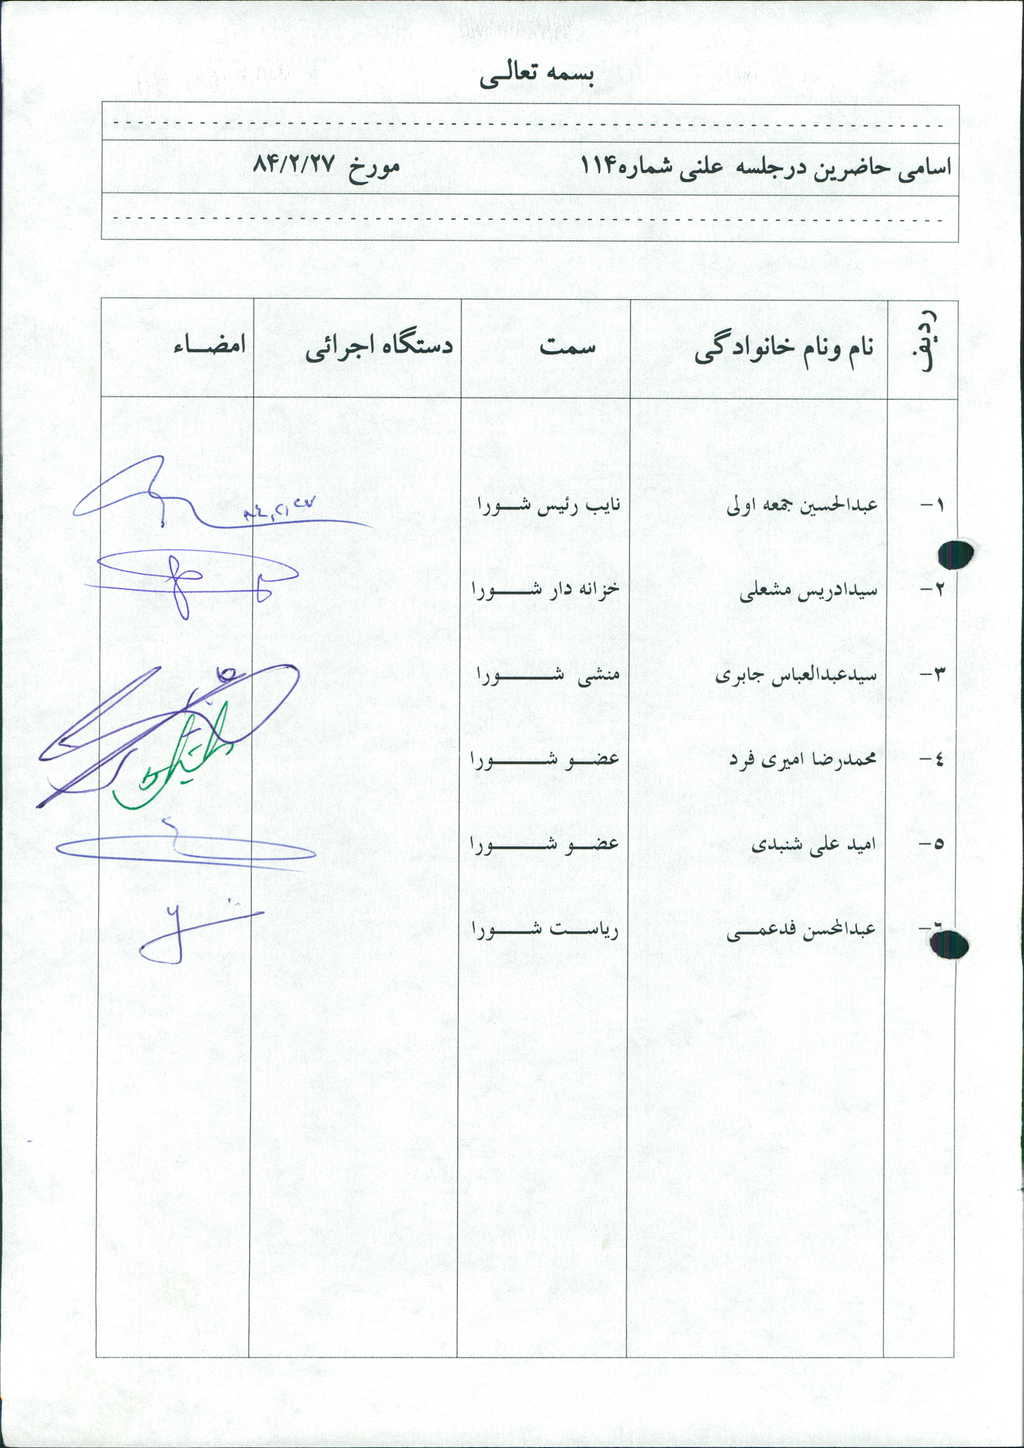 بسمه تعالی
اسامی حاضرین درجلسه علنی شماره۱۱۴ مورخ ۸۴/۲/۲۷
ردیف نام ونام خانوادگی سمت دستگاه اجرائی امضاء
۱- عبدالحسین جمعه اولی نایب رئیس شورا
۲- سیدادریس مشعلی خزانه دار شورا
۳- سیدعبدالعباس جابری منشی شورا
۴- محمدرضا امیری فرد عضو شورا
۵- امید علی شنبدی عضو شورا
۶- عبدالمحسن فدعمی ریاست شورا